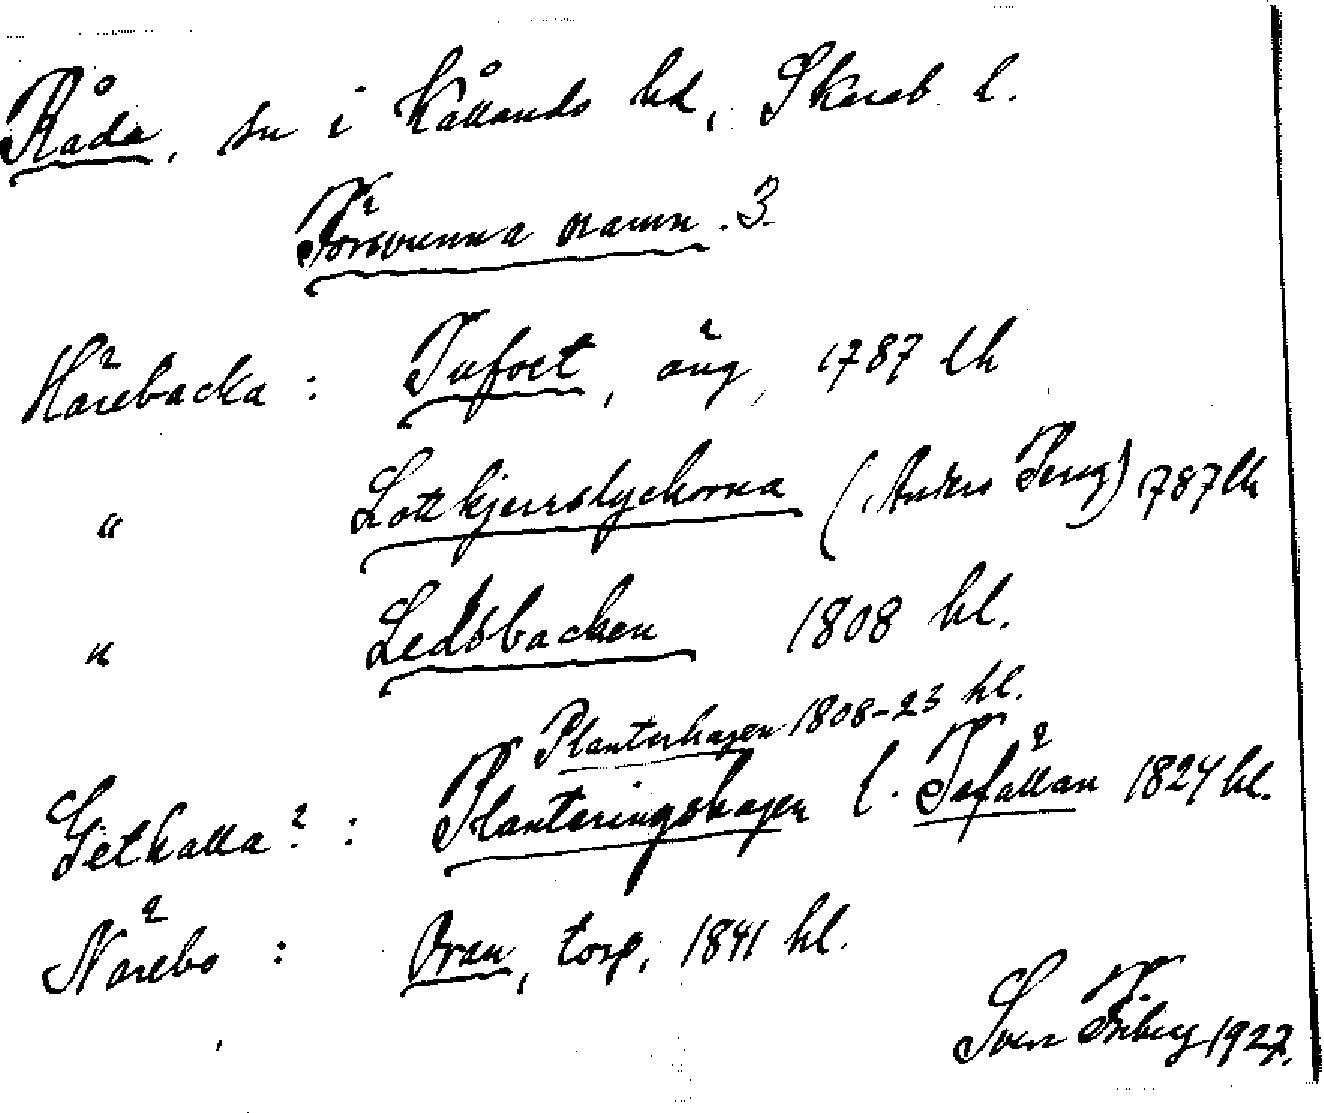 Råda, sn i Kållands hd, Skarab l.
Försvunna namn. 3.
Härebacka: Tufvet, äng, 1787 lh
" Lottkjerrslyckorna (Anders Peng) 1787 lh
" Ledsbacken 1808 hl.
Planterhagen 1808-23 hl.
Gethalla?: Planteringshagen l. Tafällan 1824 hl.
Närebo: Bran, torp, 1841 hl.
Sven Friberg 1927.